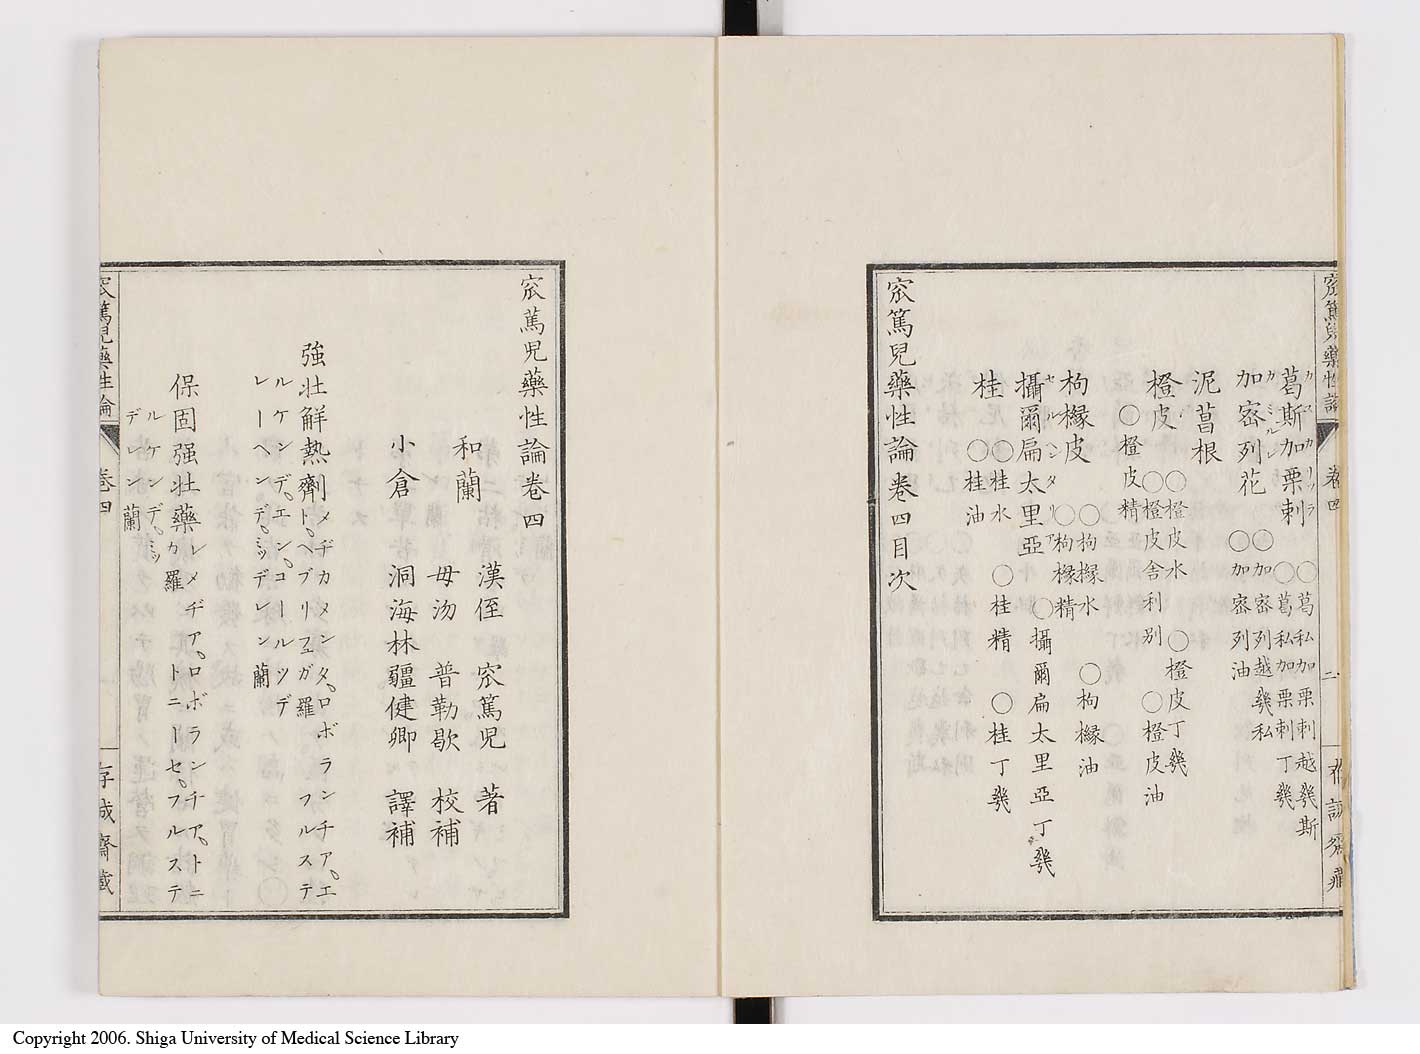 窊篤兒藥性論 卷四 二 存誠齋藏
葛斯加栗刺 ○葛私加栗刺越幾斯
カスカリルラ ○葛私加栗刺丁幾
加密列花 ○加密列越幾私
カミルレ ○加密列油
泥菖根
橙皮 ○橙皮水 ○橙皮丁幾
○橙皮舍利別 ○橙皮油
○橙皮精
枸櫞皮 ○枸櫞水 ○枸櫞油
○枸櫞精
攝爾扁太里亞 ○攝爾扁太里亞丁幾
セルペンタリア
桂 ○桂水 ○桂精 ○桂丁幾
○桂油
窊篤兒藥性論卷四目次
窊篤兒藥性論卷四
漢侄 窊篤児 著
和蘭
毋沕 普勒歇 校補
小倉 洞海林彊健卿 譯補
強壮解熱劑 メヂカメンタ、ロボランチア、エ
ト、ヘブリフユガ羅 フルステ
ルケンデ、エン、コールツデ
レーヘンデ、ミッデレン蘭
保固强壮藥 レメヂア、ロボランチア、トニ
カ羅 トニーセ、フルステ
ルケンデ、ミッ
デレン蘭
窊篤児藥性論 卷四 一 存誠齋藏